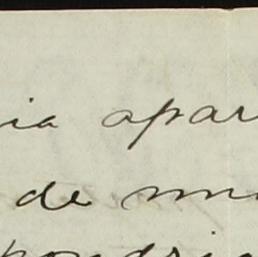 ia apar
de mu
pondria